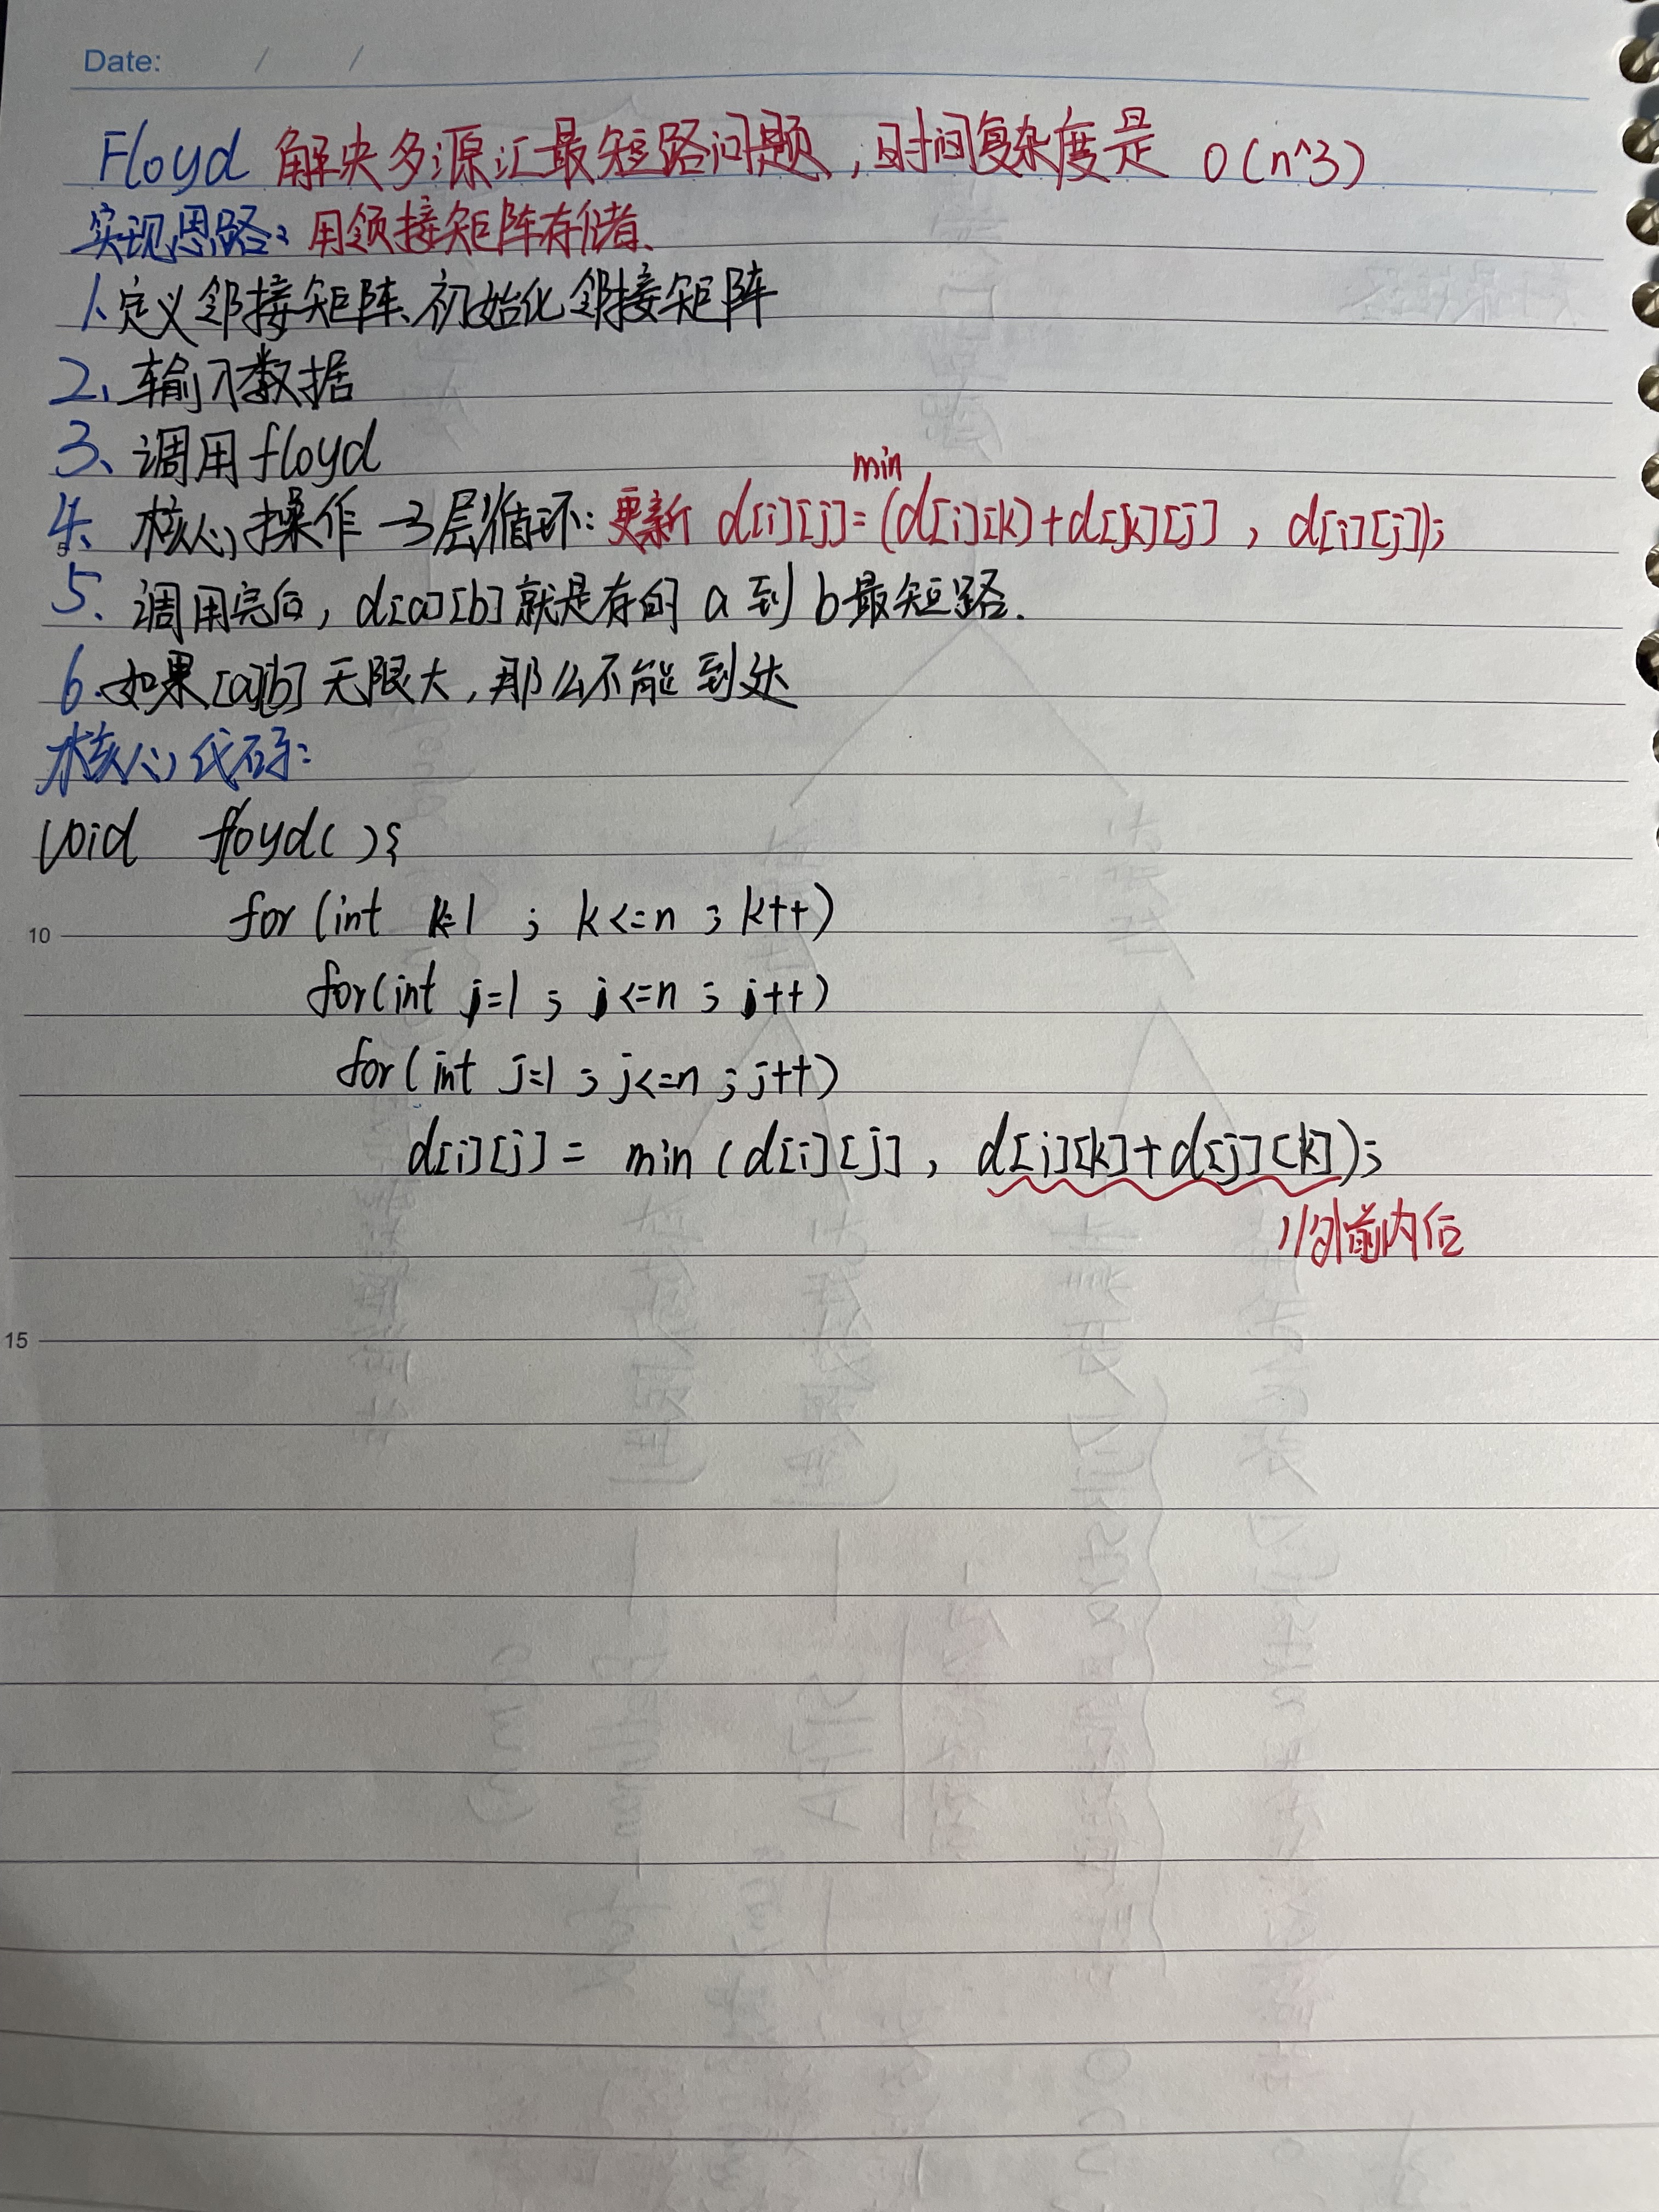 Date: / /
Floyd 解决多源汇最短路问题,时间复杂度是 O(n^3)
实现思路:用领接矩阵存储、
1、定义邻接矩阵、初始化邻接矩阵
2、输入数据
3、调用floyd
4、核心操作 - 3层循环:更新 d[i][j]=min(d[i][k]+d[k][j], d[i][j]);
5、调用完后,d[a][b]就是存的 a 到 b最短路.
6.如果[a][b]无限大,那么不能到达
核心代码:
void floyd(){
10 for (int k=1 ; k<=n ; k++)
for(int j=1 ; j<=n ; j++)
for(int j=1 ; j<=n ; j++)
d[i][j] = min (d[i][j], d[j][k]+d[j][k]);
//外前内后
15